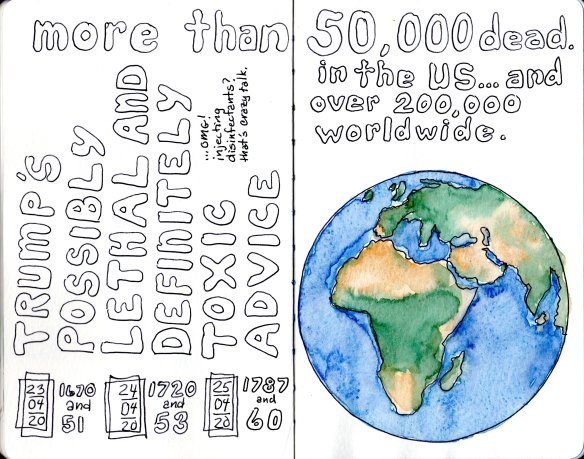 more than 50,000 dead.
in the US... and
over 200,000
worldwide.
TRUMP'S
POSSIBLY
LETHAL AND
DEFINITELY
TOXIC
ADVICE
...OMG!
injecting
disinfectants?
that's crazy talk.
23
04
20
1670
and
51
24
04
20
1720
and
53
25
04
20
1787
and
60